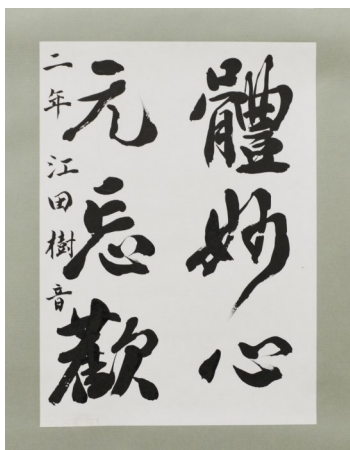 體妙心
元忘歡
二年 江田樹音